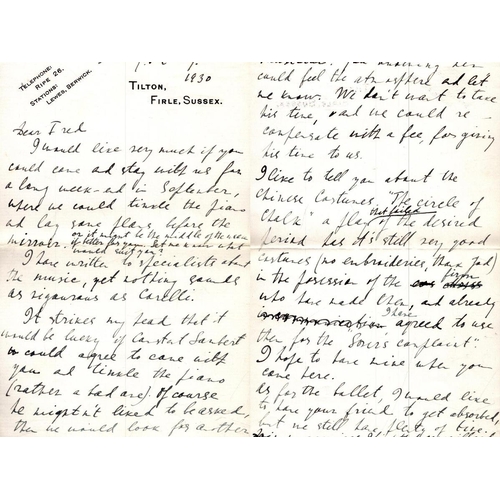 TELEPHONE:
RIPE 26.
STATIONS:
LEWES, BERWICK.
1930
TILTON,
FIRLE, SUSSEX.
Dear Fred
I would like very much if you
could come and stay with us for
a long week-end in September,
where we could tinkle the piano
and lay some plays before the
or it might be the middle of the week
mirror. if better for you. Let me know what
would suit you?
I have written to specialists about
the music, yet nothing sounds
as rigourous as Corelli.
It strikes my head that it
would be lucky if Constant Lambert
could agree to come with
you and tinkle the piano
(rather a bad one). Of course
he mightn't liked to be asked,
then we would look for another
could feel the atmosphere and let
me know. We don't want to take
his time, and we could re-
compensate with a fee for giving
his time to us.
I like to tell you about the
Chinese costumes, "The circle of
Chalk" a play of the desired
that failed
period has it's still very good
costumes (no embroideries, thank God)
in the possession of the person
who have made them, and already
I have
agreed to use
them for the "Lover's complaint".
I hope to have mine when you
come here.
As for the ballet, I would like
to have your friend to get absorbed,
but we still have plenty of time.